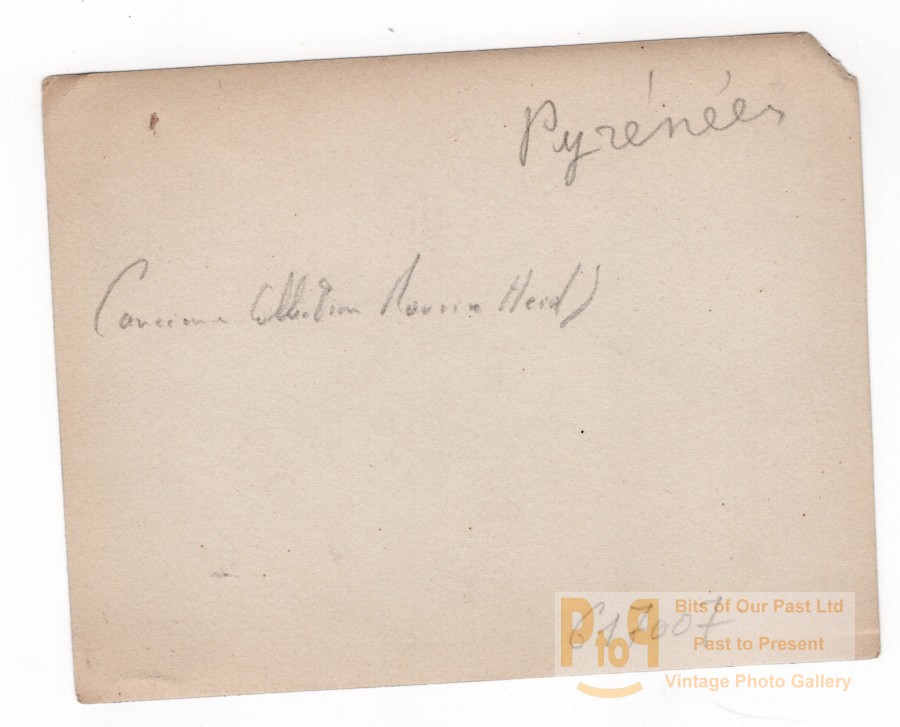 Pyrénées
(ancienne Collection
617007
PtoP
Bits of Our Past Ltd
Past to Present
Vintage Photo Gallery